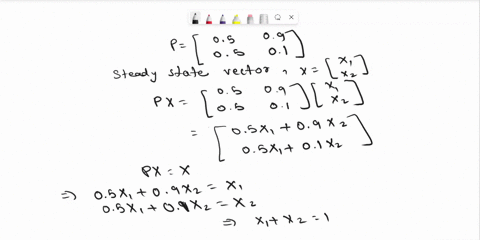 P = [ 0.5 0.9
0.5 0.1 ]
Steady state vector, x = [ x₁
x₂ ]
PX = [ 0.5 0.9
0.5 0.1 ] [ x₁
x₂ ]
= [ 0.5x₁ + 0.9x₂
0.5x₁ + 0.1x₂ ]
PX = X
⇒ 0.5x₁ + 0.9x₂ = x₁
0.5x₁ + 0.1x₂ = x₂
⇒ x₁ + x₂ = 1